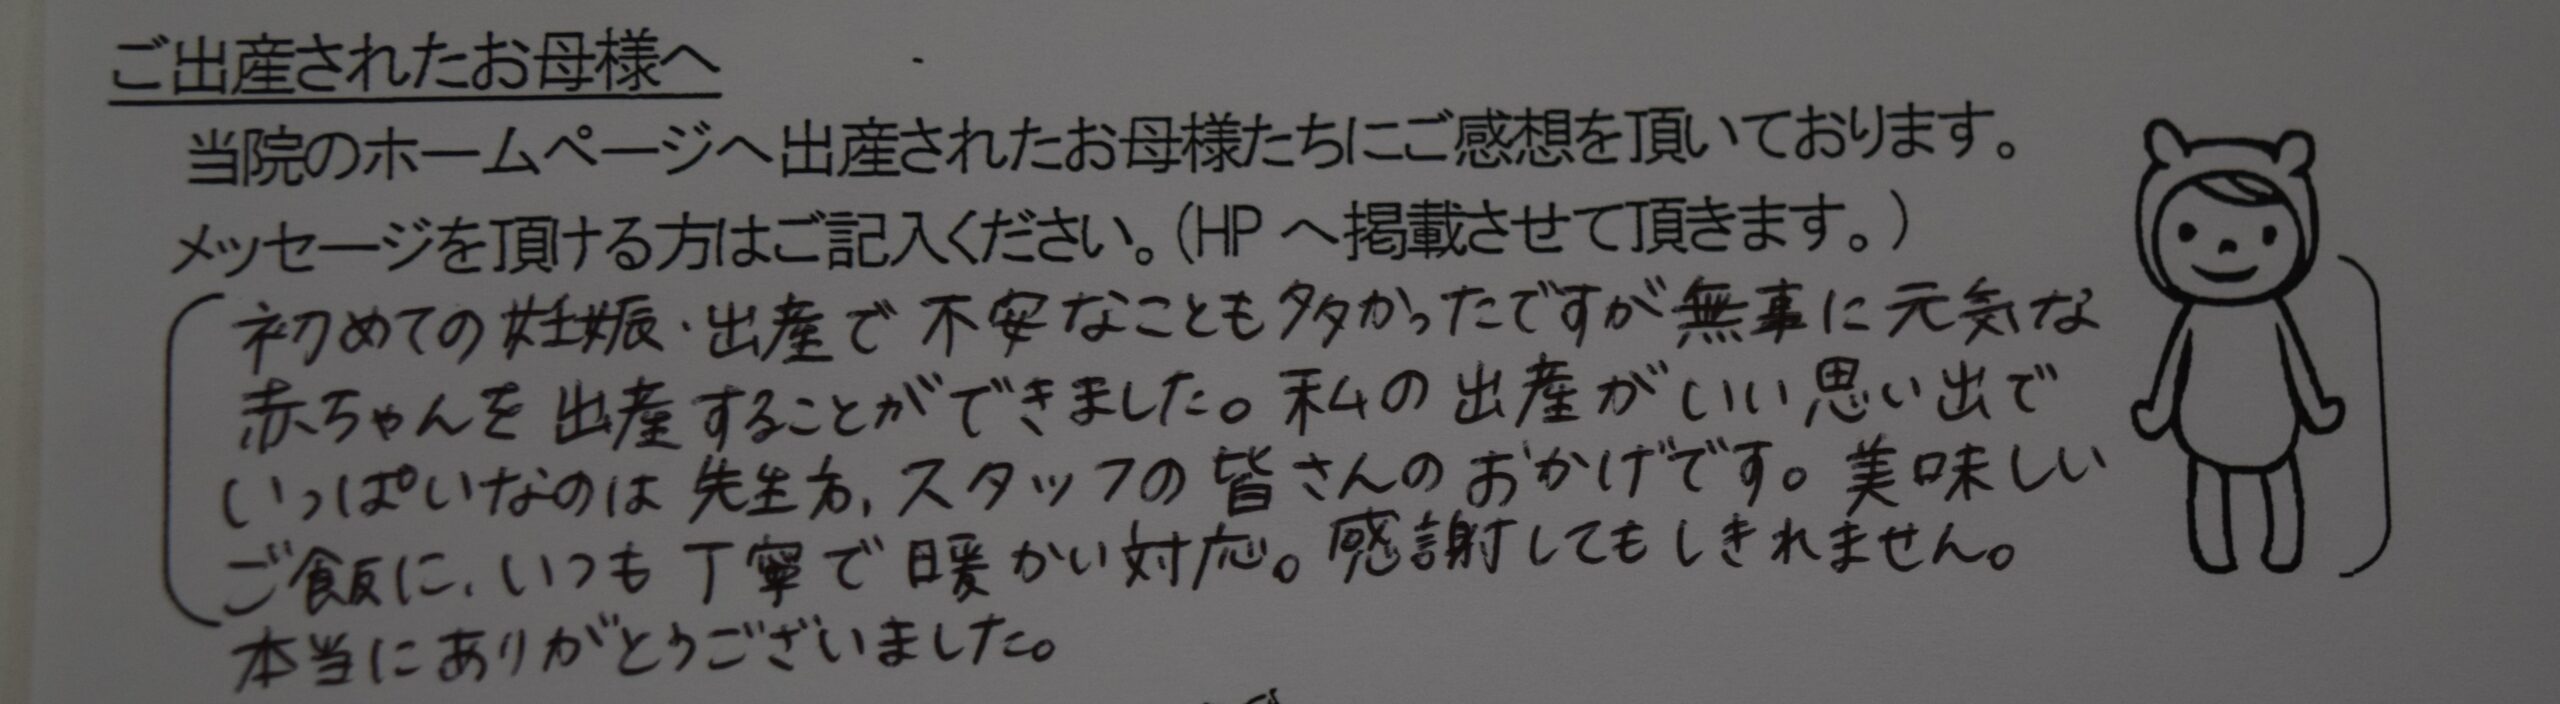 ご出産されたお母様へ
当院のホームページへ出産されたお母様たちにご感想を頂いております。
メッセージを頂ける方はご記入ください。(HPへ掲載させて頂きます。)
初めての妊娠・出産で不安なことも多かったですが無事に元気な
赤ちゃんを出産することができました。私の出産がいい思い出で
いっぱいなのは先生方、スタッフの皆さんのおかげです。美味しい
ご飯に、いつも丁寧で暖かい対応。感謝してもしきれません。
本当にありがとうございました。